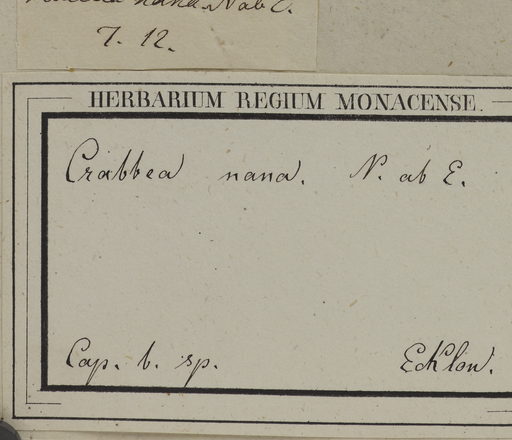 nana. N ab E.
7. 12.
HERBARIUM REGIUM MONACENSE.
Crabbea nana. N. ab E.
Cap. b. sp. Ecklon.